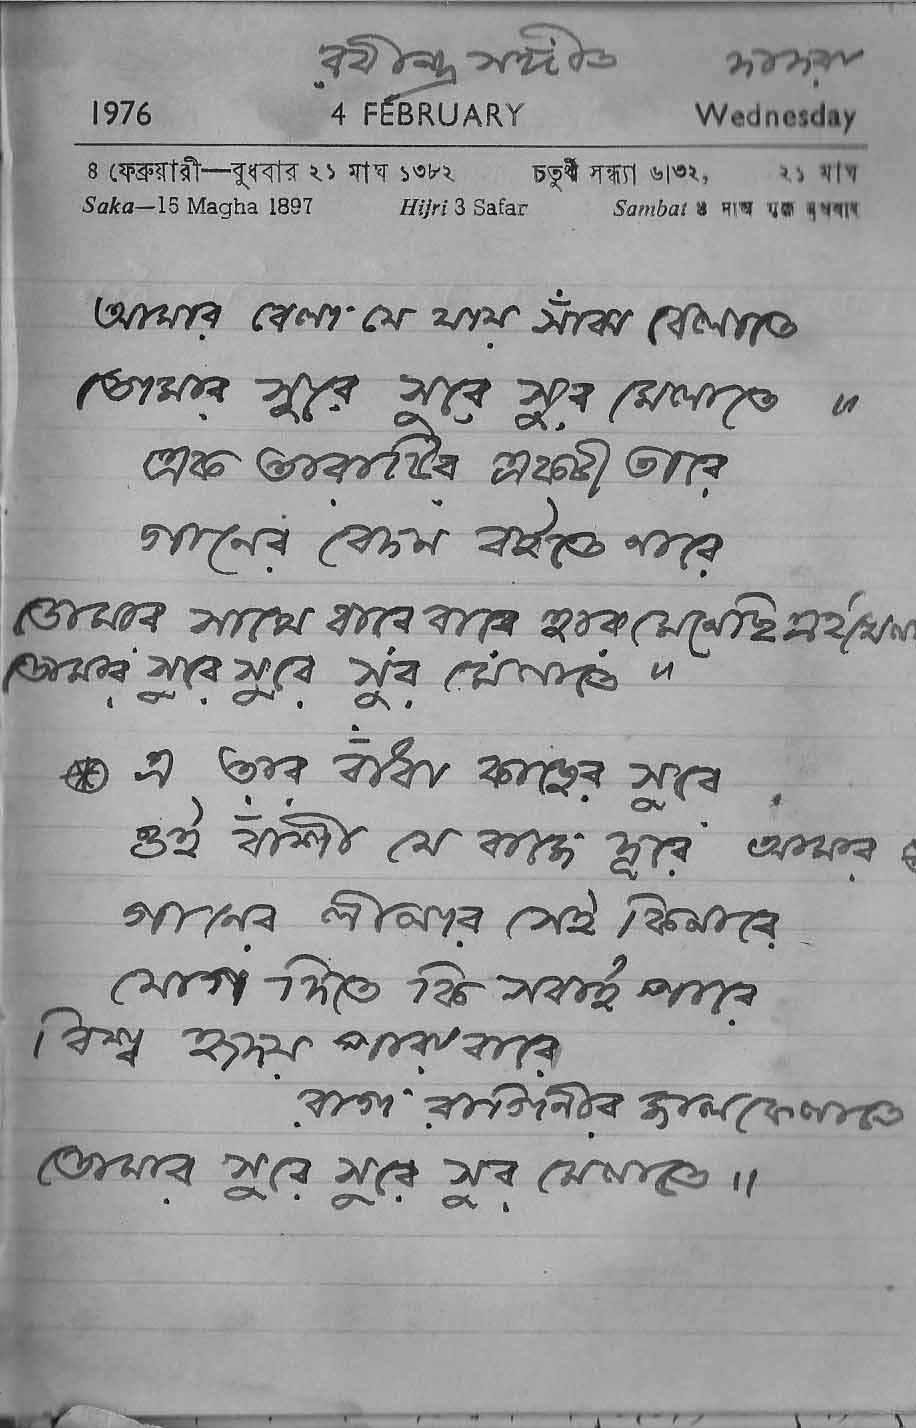 রবীন্দ্র সঙ্গীত দাদরা
1976 4 FEBRUARY Wednesday
৪ ফেব্রুয়ারী—বুধবার ২১ মাঘ ১৩৮২ চতুর্থী সন্ধ্যা ৬।৩২, ২১ মাঘ
Saka—15 Magha 1897 Hijri 3 Safar Sambat ৪ माघ शुक्ल बुधवार
আমার বেলা যে যায় সাঁঝ বেলাতে
তোমার সুরে সুরে সুর মেলাতে ॥
এক তারাটির একটী তারে
গানের বেদন বইতে নারে
তোমার সাথে বারে বারে হার মেনেছি এই খেলা
তোমার সুরে সুরে সুর মেলাতে ॥
এ তার বাঁধা কাছের সুরে
ওই বাঁশী যে বাজে দূরে আমার
গানের লীলার সেই কিনারে
যোগ দিতে কি সবাই পারে
বিশ্ব হৃদয় পারাবারে
রাগ রাগিনীর জাল ফেলাতে
তোমার সুরে সুরে সুর মেলাতে ॥